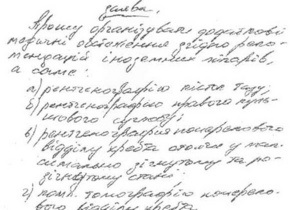 заява.
Прошу організувати додаткові
медичні обстеження згідно реко-
мендацій іноземних лікарів,
а саме:
а) рентгенографію кісток тазу,
б) рентгенографію правого куль-
шового суглобу;
в) рентгенографія поперекового
відділу хребта охопл у мак-
симально зігнутому та ро-
зігнутому стані;
г) комп. томографію попереко-
вого відділу хребта